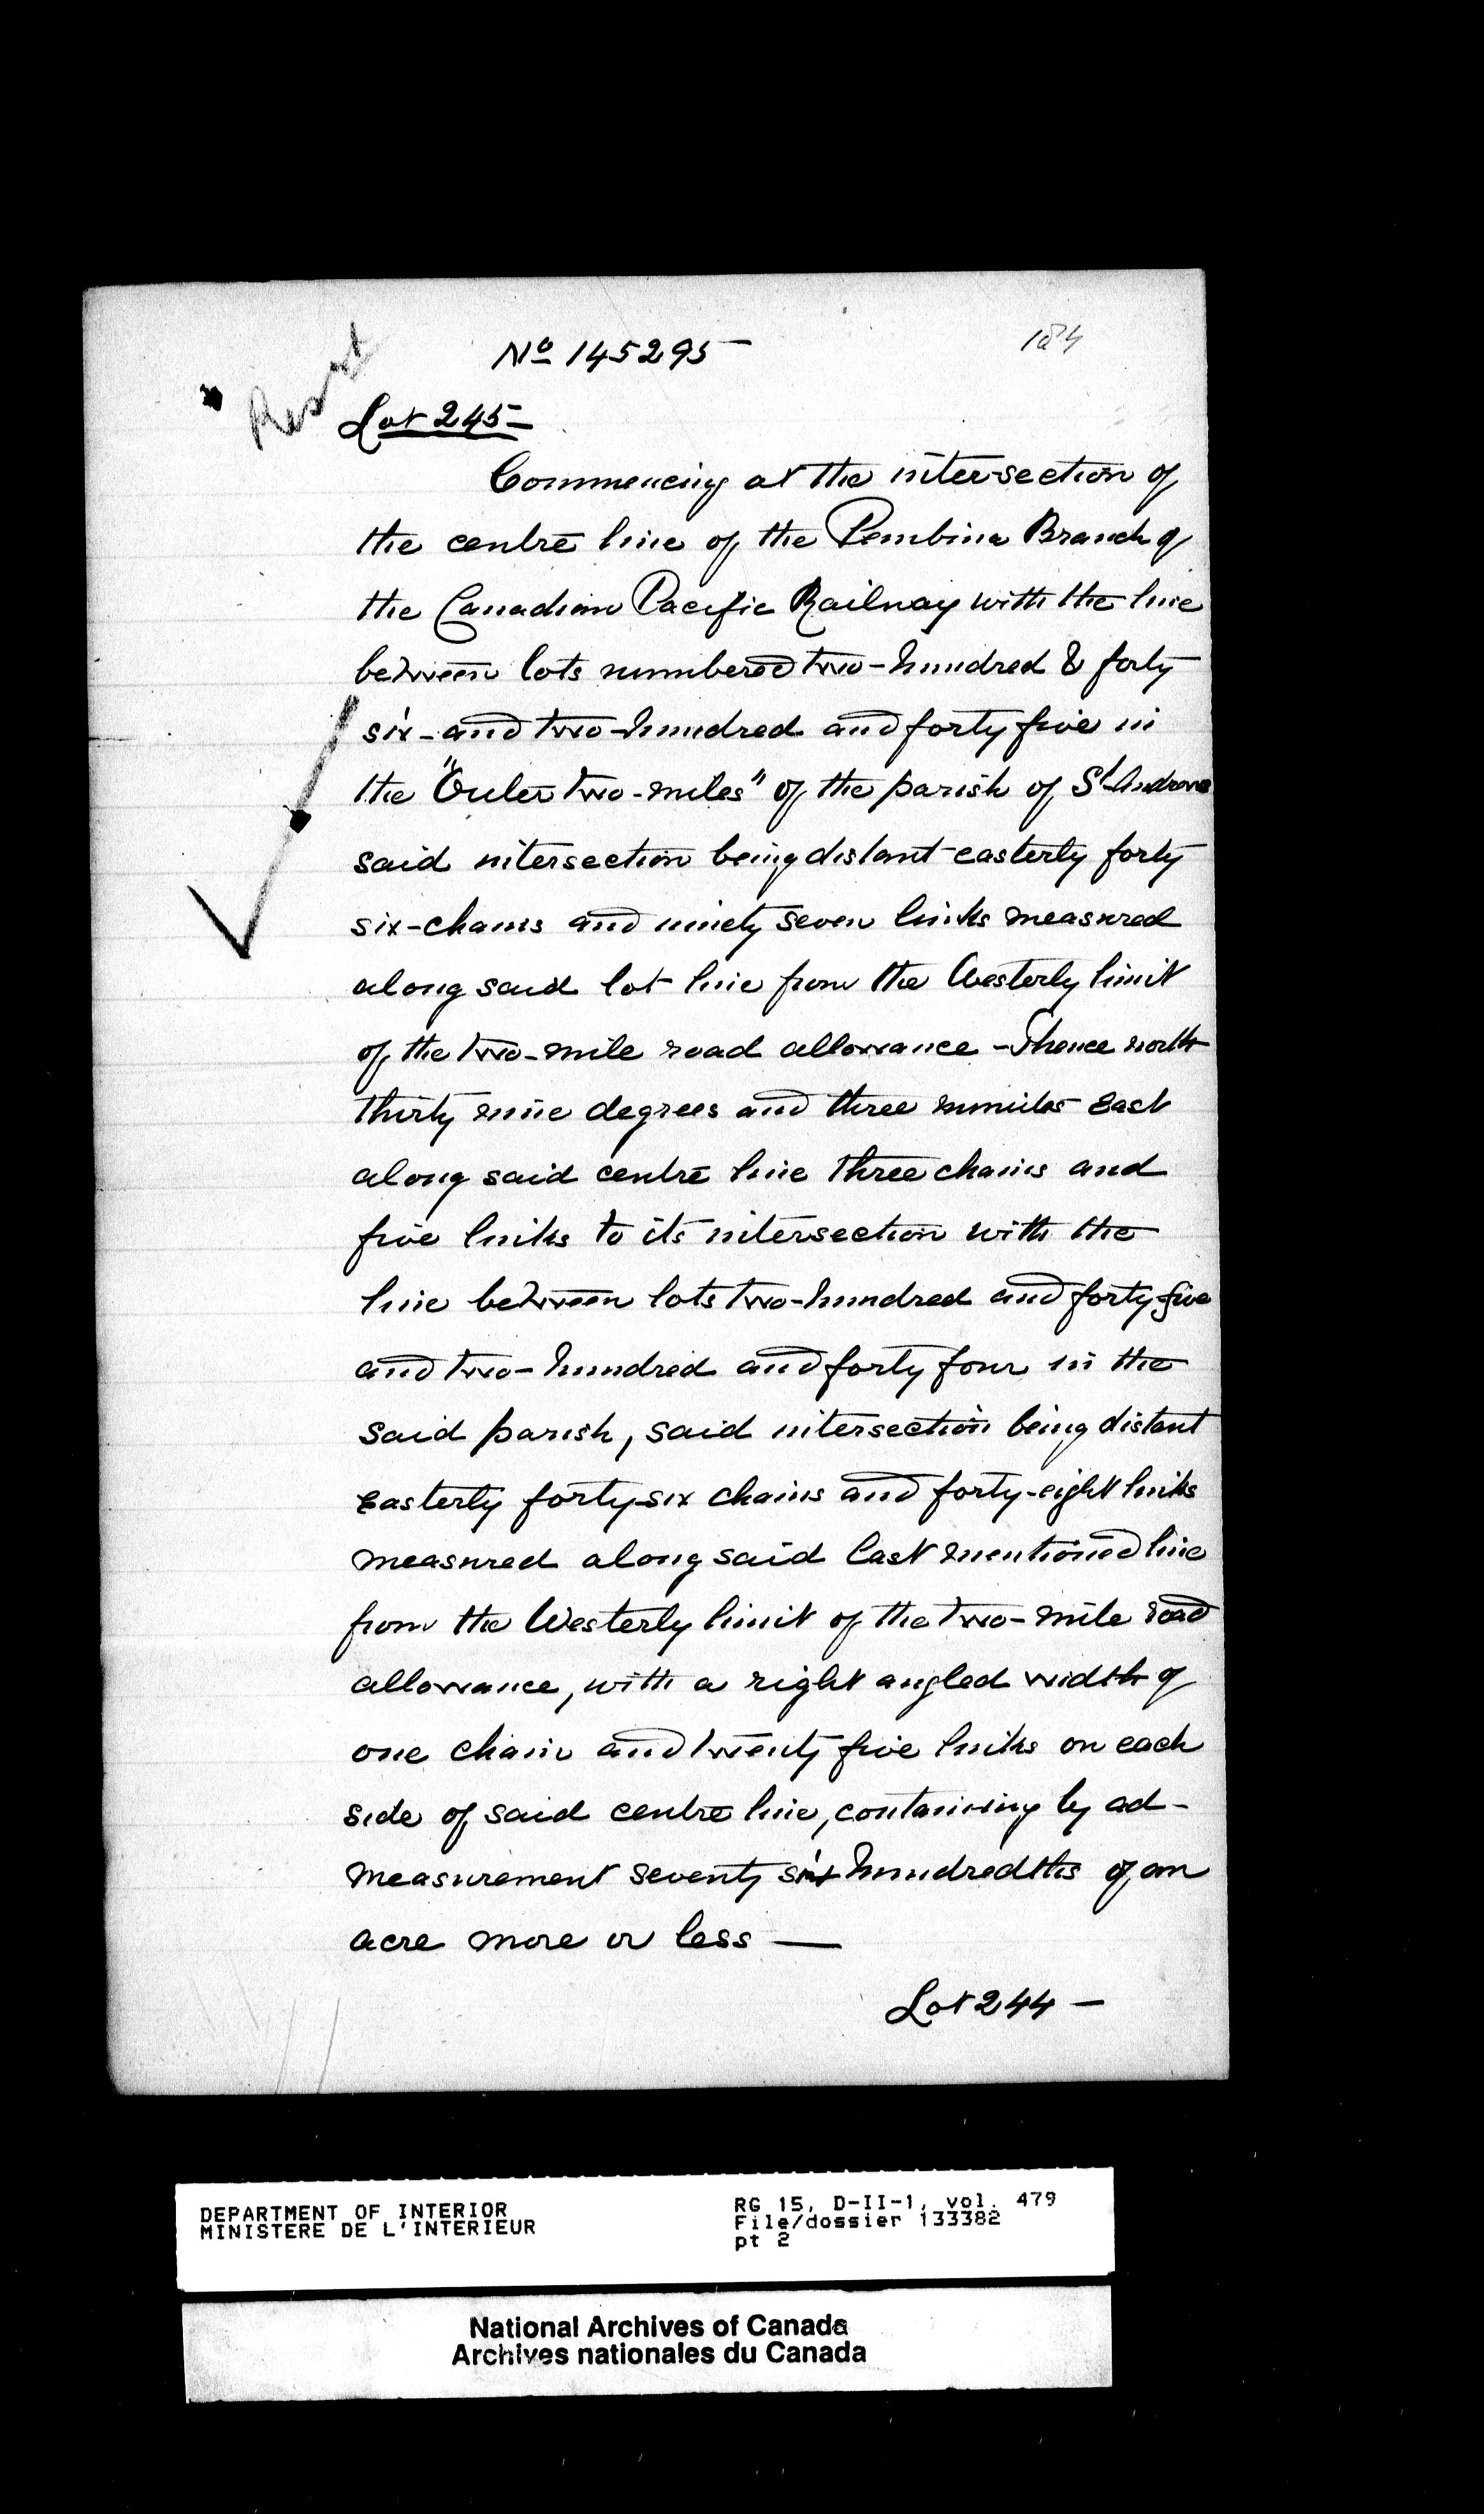 No 145295
184
Lot 245
Commencing at the intersection of
the centre line of the Pembina Branch of
the Canadian Pacific Railway with the line
between lots numbered two-hundred & forty
six - and two-hundred and forty five in
the "Outer two-miles" of the parish of St Andrews
said intersection being distant easterly forty
six-chains and ninety seven links measured
along said lot line from the Westerly limit
of the two-mile road allowance - Thence north
thirty nine degrees and three minutes East
along said centre line three chains and
five links to its intersection with the
line between lots two-hundred and forty-five
and two-hundred and forty four in the
said parish, said intersection being distant
Easterly forty-six chains and forty-eight links
measured along said last mentioned line
from the Westerly limit of the two-mile road
allowance, with a right angled width of
one chain and twenty five links on each
side of said centre line, containing by ad-
measurement seventy six hundredths of an
acre more or less —
Lot 244 —
DEPARTMENT OF INTERIOR
MINISTERE DE L'INTERIEUR
RG 15, D-II-1, vol. 479
File/dossier 133382
pt 2
National Archives of Canada
Archives nationales du Canada